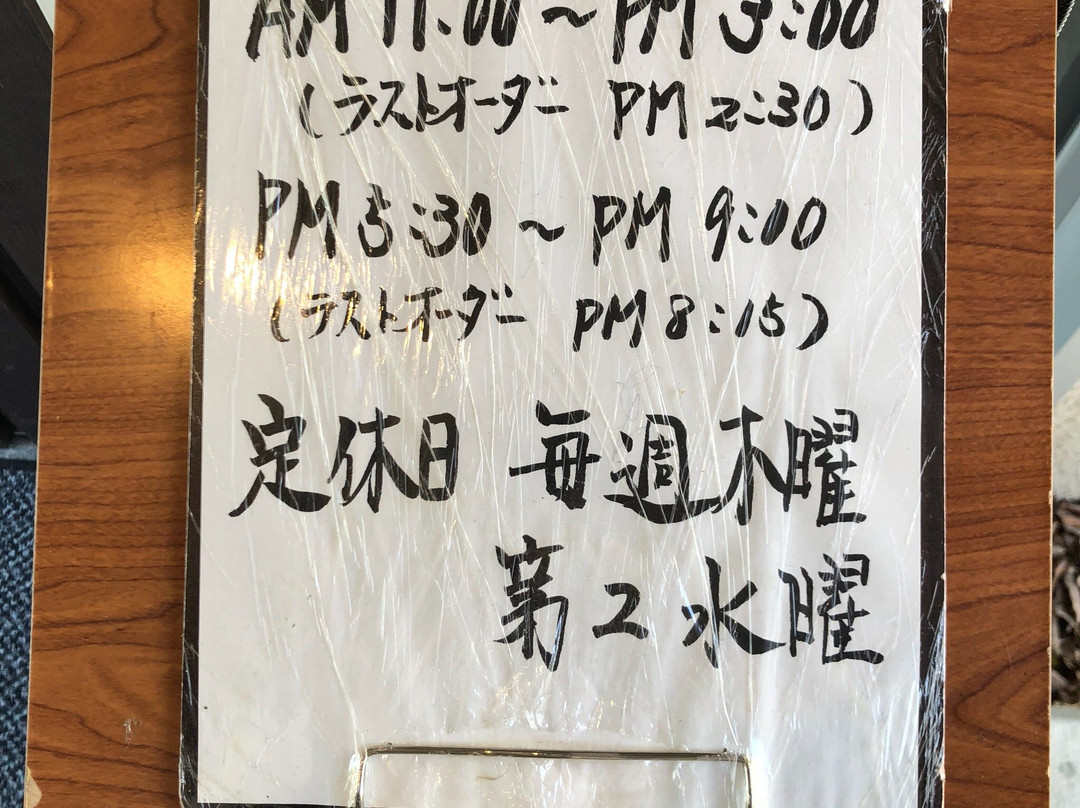 AM 11:00 ~ PM 3:00
(ラストオーダー PM 2:30)
PM 5:30 ~ PM 9:00
(ラストオーダー PM 8:15)
定休日 毎週木曜
第2水曜